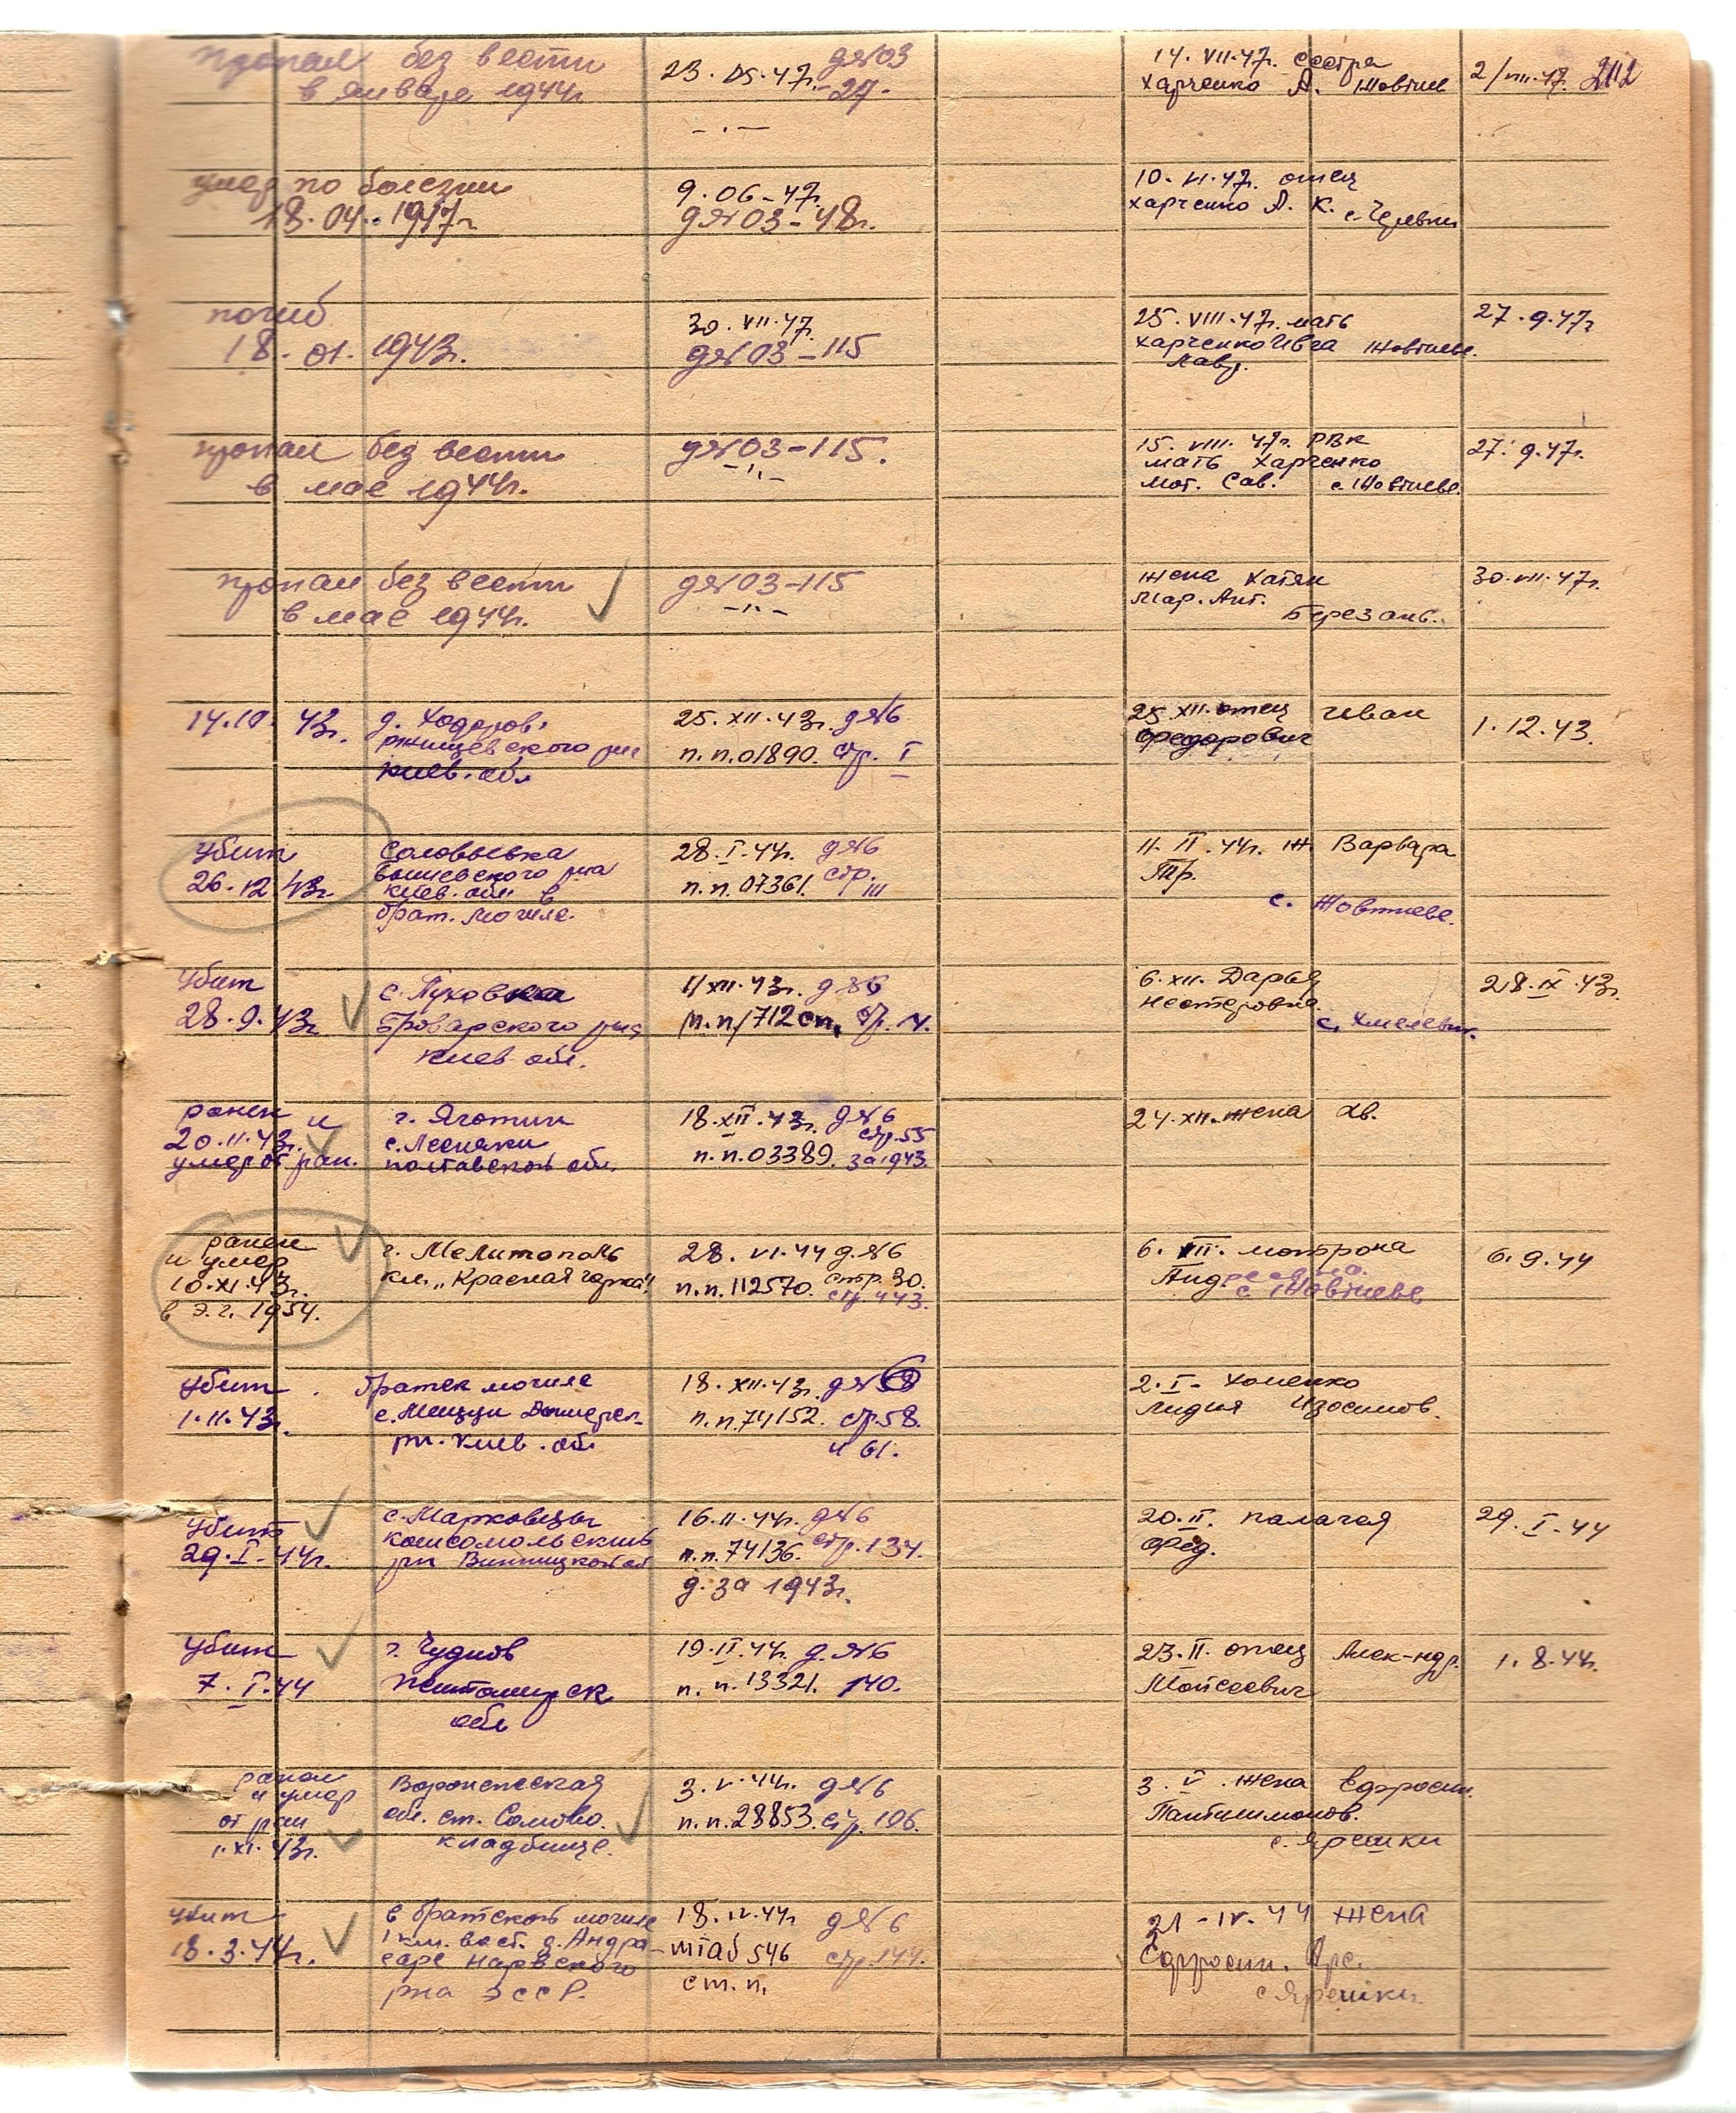 пропал без вести
в январе 1944г.
23. IX. 47г. д№03
-27-
14. VII. 47г. сестра
Харченко А. Жовтнев
2/VIII. 47. 212
умер по болезни
18. 04. 1947г.
9. 06 - 47г.
д№03 - 48г.
10. VI. 47г. отец
Харченко А. К.
погиб
18. 01. 1943г.
30. VII. 47
д№03 - 115
25. VIII. 47г. мать
Харченко Ивга Жовтнев.
Лавр.
27. 9. 47г
пропал без вести
в мае 1944г.
д№03 - 115.
-"-
15. VIII. 47г. РВК
мать Харченко
Мот. Сав. с. Жовтневе.
27. 9. 47г.
пропал без вести
в мае 1944г.
д№03 - 115
-"-
жена Хатян
Мар. Ант.
Березань.
30. VII. 47г.
14. 10. 43г.
д. Ходоров.
Ржищевского р-на
Киев. обл
25. XII. 43г. д№6
п. п. 01890. стр. I
25 XII. отец Иван
Федорович
1. 12. 43.
убит
26. 12 43г.
Соловьевка
р-на
Киев. обл в
брат. могиле.
28. I. 44г. д№6
стр.
п. п. 07361. III
11. II. 44г. ж Варвара
Тр.
с. Жовтневе.
убит
28. 9. 43г
с. Пуховка
Броварского р-на
Киев обл.
11 XII. 43г. д№6
п. п/712 сп, стр. 14.
6. XII. Дарья
Нестеровна.
с. Хмелевик.
28. IX. 43г.
ранен и
20. 11. 43г.
умер от ран.
г. Яготин
с. Лесняки
Полтавской обл.
18. XII. 43г. д№6
стр. 55
п. п. 03389. за 1943.
24. XII. жена Хв.
ранен
и умер
10. XI. 43г.
в Э. г. 1954.
г. Мелитополь
кл. „Красная горка"
28. VI. 44 д. №6
п. п. 112570. стр. 30.
стр. 443.
6. VII. Мотрона
Андреевна.
с. Жовтневе
6. 9. 44
убит
1. 11. 43г.
братск могиле
рн. Киев. обл
18. XII. 43г. д№6
п. п. 74152. стр. 58.
и 61.
2. I - Хоменко
Лидия Изосимов.
убит
29. I - 44г.
с. Марковцы
Комсомольский
рн Винницкой об
16. II. 44г. д№6
п. п. 74136. стр. 134.
д. за 1943г.
20. II. Палагея
Фед.
29. I - 44
убит
7. I. 44
г. Чуднов
Житомирск
обл
19. II. 44г. д. №6
п. п. 13321. 140.
23. II. отец Алек-ндр.
Мойсеевич
1. 8. 44г.
ранен
и умер
от ран
1. XI. 43г.
Воронежская
обл. ст. Сомово.
кладбище.
3. V. 44г. д№6
п. п. 28853. стр. 106.
3. V. жена Ефросин.
Пантилимонов.
с. Ярешки
убит
18. 3. 44г.
в братской могиле
1 км. вост. д. Андра-
саре Нарвского
рна ЭССР.
18. IV. 44г д№6
штаб 546 стр. 144.
ст. п.
21 - IV. 44 жена
Ефросин. Арс.
с. Ярешки.